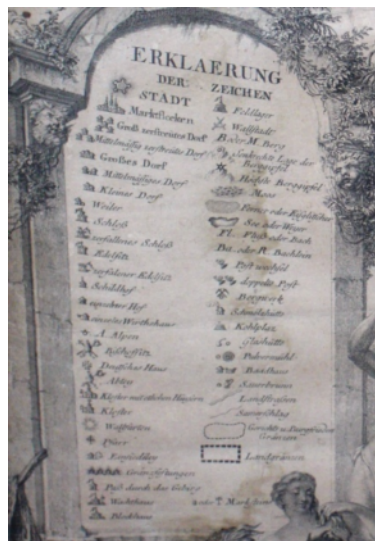 ERKLAERUNG
DER ZEICHEN
STADT
Marktflecken
Groß zerstreutes Dorf
Mittelmäßig zerstreutes Dorf
Großes Dorf
Mittelmäßiges Dorf
Kleines Dorf
Weiler
Schloß
zerfallenes Schloß
Edelsitz
zerfallener Edelsitz
Schildhof
einzelner Hof
einzeln Wirthshaus
A. Alpen
Bischoffsitz
Deutsches Haus
Abtey
Kloster mit etlichen Häusern
Kloster
Wallfarten
Pfarr
Gränzfestungen
Paß durch das Gebürg
Wachthaus
Blockhaus
Feldlager
Wallstadt
B. oder M. Berg
Senkrechte Lage der
Berggipfel
Höchste Berggipfel
Moos
See oder Weyer
Fl. Fluß oder Bach
Ba. oder R. Bächlein
Postwechsel
doppelte Post
Bergwerk
Schmelzhütte
Kohlplatz
Glashütte
Pulvermühl
Baadhaus
Sauerbrunn
Landstraßen
Saumschlag
Gerichts u. Burgfrieden
Gränzen
Landgränzen